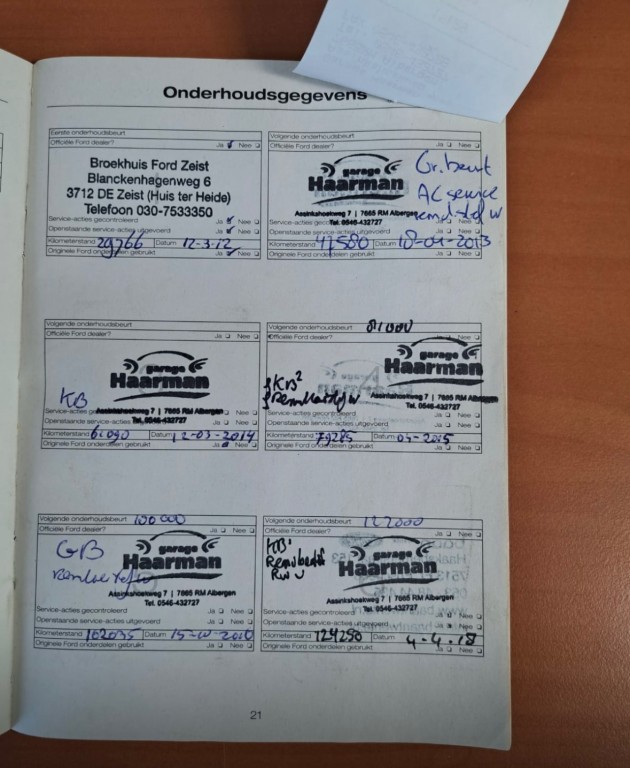 Onderhoudsgegevens
Eerste onderhoudsbeurt
Officiële Ford dealer? Ja Nee
Broekhuis Ford Zeist
Blanckenhagenweg 6
3712 DE Zeist (Huis ter Heide)
Telefoon 030-7533350
Service-acties gecontroleerd Ja Nee
Openstaande service-acties uitgevoerd Ja Nee
Kilometerstand 29766 Datum 12-3-12
Originele Ford onderdelen gebruikt Ja Nee
Volgende onderhoudsbeurt
Officiële Ford dealer? Ja Nee
garage
Haarman
Gr. beurt
AC service
Assinkshoekweg 7 | 7665 RM Albergen
Tel. 0546-432727
Openstaande service-acties uitgevoerd Ja Nee
Kilometerstand 47580 Datum 2013
Originele Ford onderdelen gebruikt Ja Nee
Volgende onderhoudsbeurt
Officiële Ford dealer? Ja Nee
garage
Haarman
KB
Assinkshoekweg 7 | 7665 RM Albergen
Tel. 0546-432727
Openstaande service-acties uitgevoerd Ja Nee
Kilometerstand Datum 12-03-2014
Originele Ford onderdelen gebruikt Ja Nee
Volgende onderhoudsbeurt 81000
Officiële Ford dealer? Nee
garage
Haarman
KB²
Assinkshoekweg 7 | 7665 RM Albergen
Tel. 0546-432727
Service-acties gecontroleerd Ja Nee
Openstaande service-acties uitgevoerd Ja Nee
Kilometerstand 79285 Datum
Originele Ford onderdelen gebruikt Ja Nee
Volgende onderhoudsbeurt 100000
Officiële Ford dealer? Ja Nee
garage
Haarman
GB
Assinkshoekweg 7 | 7665 RM Albergen
Tel. 0546-432727
Service-acties gecontroleerd Ja Nee
Openstaande service-acties uitgevoerd Ja Nee
Kilometerstand 102035 Datum
Originele Ford onderdelen gebruikt Ja Nee
Volgende onderhoudsbeurt 122000
Officiële Ford dealer? Ja Nee
garage
Haarman
KB
Assinkshoekweg 7 | 7665 RM Albergen
Tel. 0546-432727
Service-acties gecontroleerd Ja Nee
Openstaande service-acties uitgevoerd Ja Nee
Kilometerstand 124290 Datum 4-4-18
Originele Ford onderdelen gebruikt Ja Nee
21